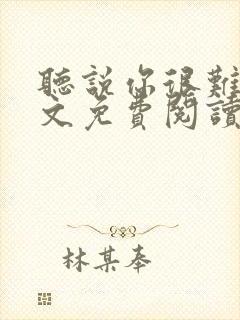 聽說你很難
文免費閱讀
林某奉